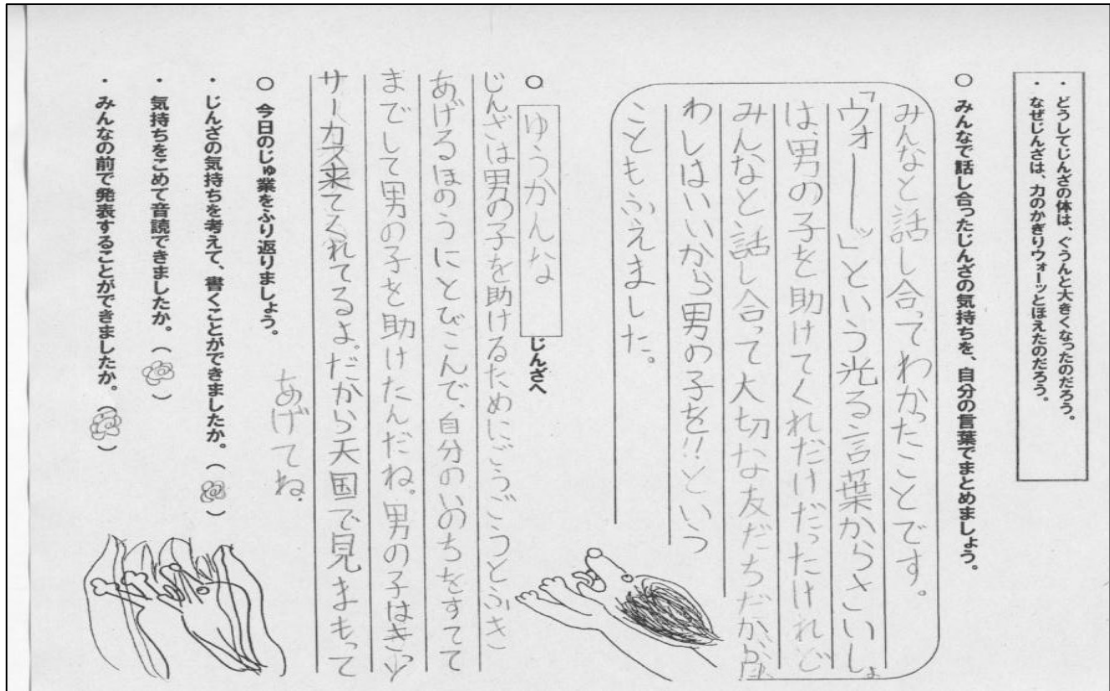 ・ どうしてじんざの体は、ぐうんと大きくなったのだろう。
・ なぜじんざは、力のかぎりウォーッとほえたのだろう。
○ みんなで話し合ったじんざの気持ちを、自分の言葉でまとめましょう。
みんなと話し合ってわかったことです。
「ウォーーーッ」という光る言葉からさいしょ
は、男の子を助けてくれだけだったけれど
みんなと話し合って大切な友だちだから
わしはいいから男の子を!!という
こともふえました。
○ ゆうかんな じんざへ
じんざは男の子を助けるためにごうごうとふき
あげるほのうにとびこんで、自分のいのちをすてて
までして男の子を助けたんだね。男の子はきっ
サーカス来てくれてるよ。だから天国で見まもって
あげてね。
○ 今日のじゅ業をふり返りましょう。
・ じんざの気持ちを考えて、書くことができましたか。( )
・ 気持ちをこめて音読できましたか。( )
・ みんなの前で発表することができましたか。( )